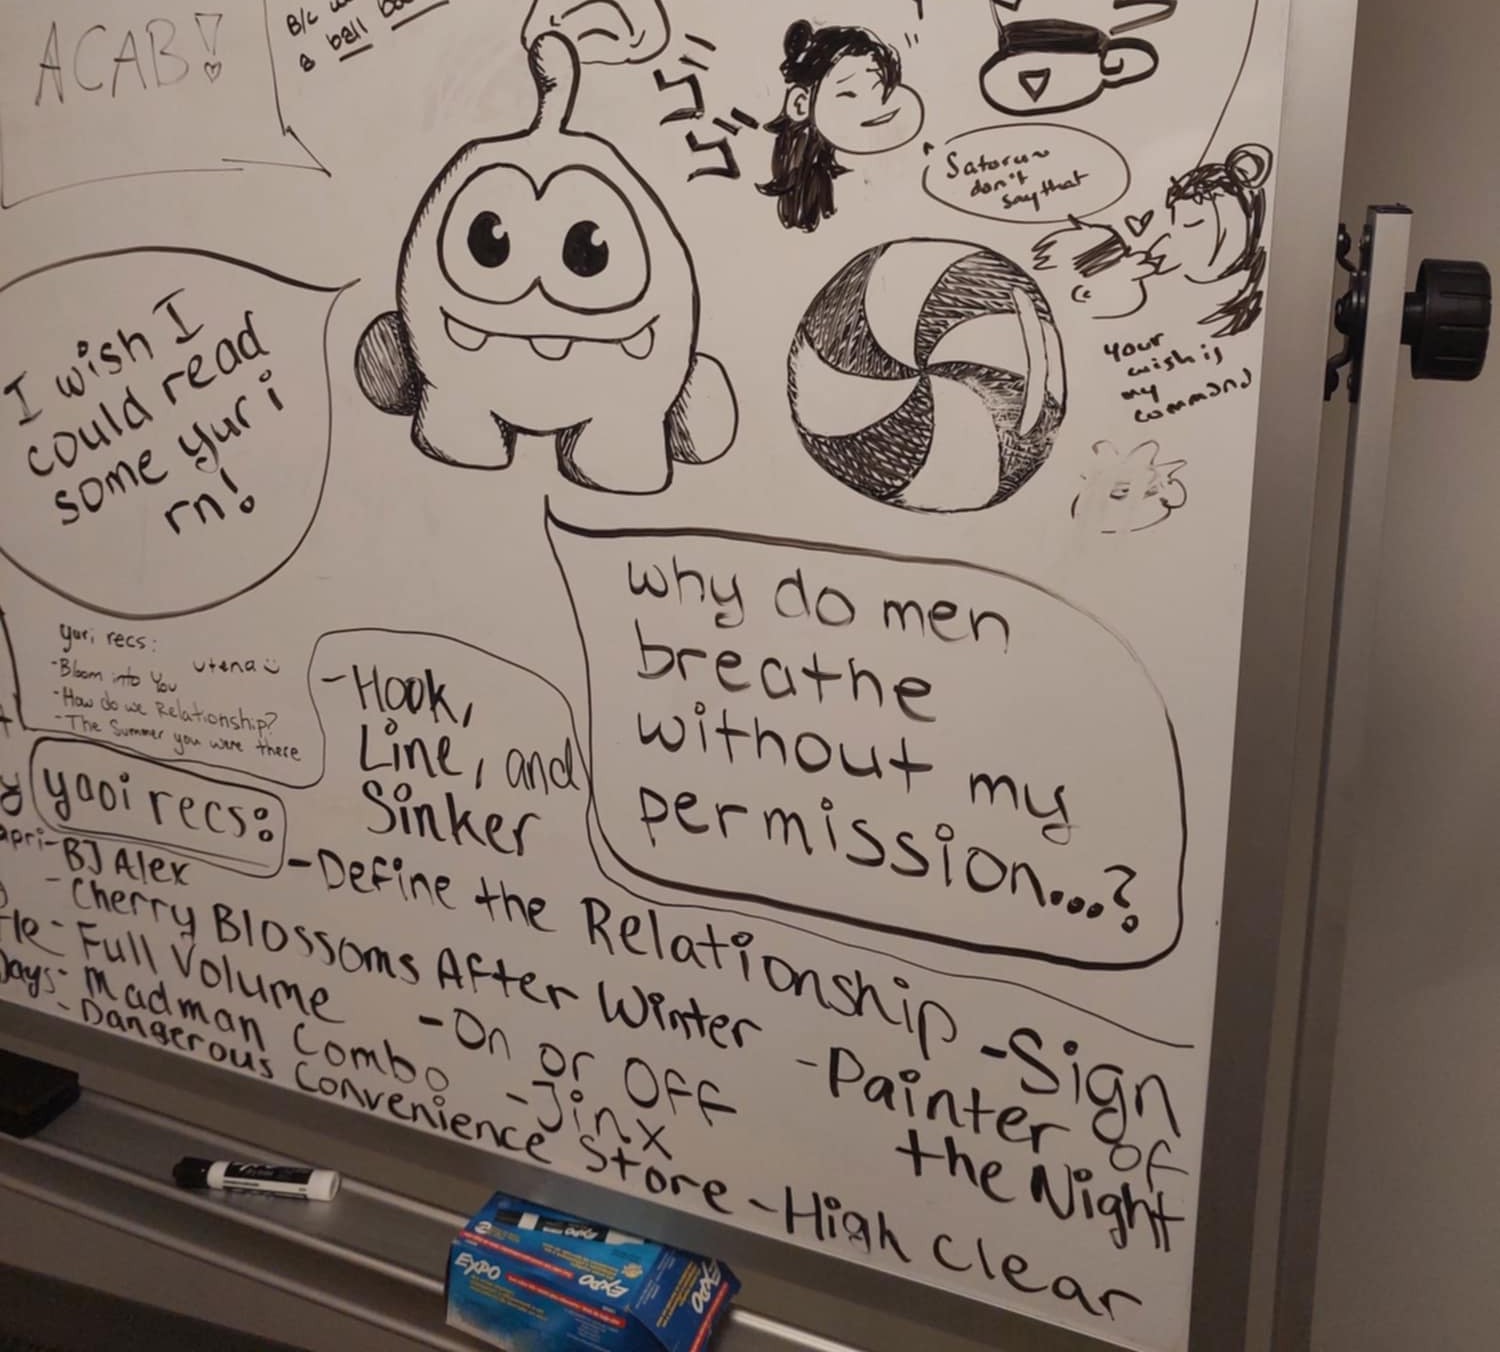 ACAB!
B/c
a bell
Satoru~
don't
say that
Your
wish is
my
command
I wish I
could read
some yuri
rn!
why do men
breathe
without my
permission...?
yuri recs:
-Bloom into You
utena
-How do we Relationship?
-The Summer you were there
-Hook,
Line, and
Sinker
yaoi recs:
-BJ Alex
-Define the Relationship
-Cherry Blossoms After Winter
-Sign
-Full Volume
-On or Off
-Painter of
the Night
-Madman Combo
-Jinx
-Dangerous Convenience Store
-High Clear
EXPO
EXPO
EXPO